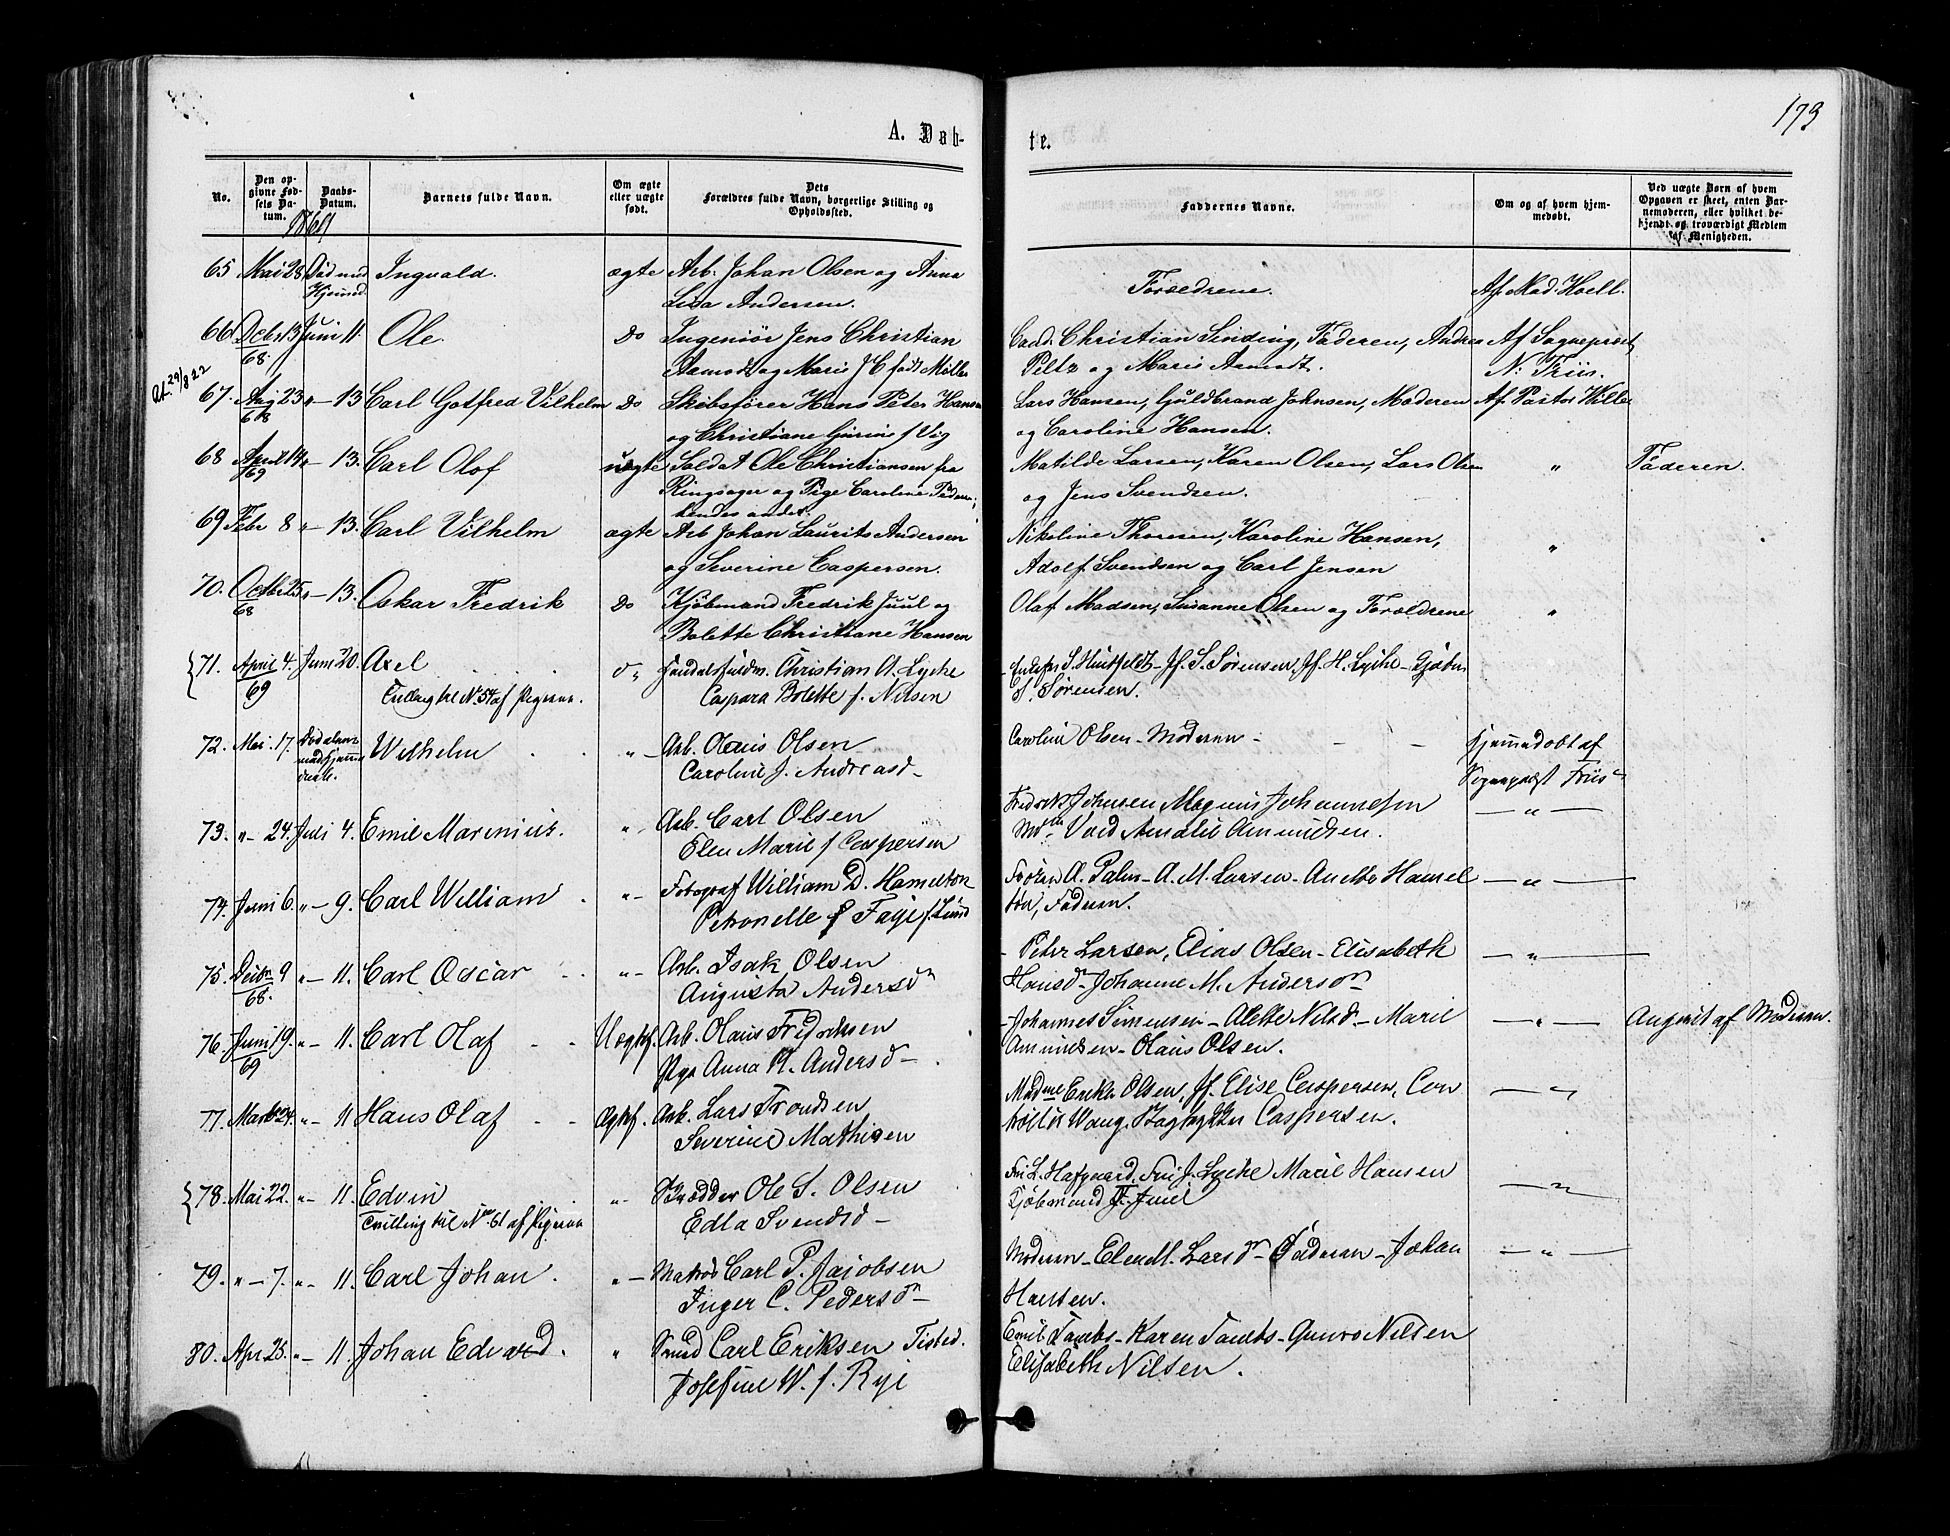 173
A. Døb-
te.
No.
Den op-
givne Fød-
sels Da-
tum.
Daabs-
Datum.
Barnets fulde Navn.
Om ægte
eller uægte
født.
Dets
Forældres fulde Navn, borgerlige Stilling og
Opholdssted.
Faddernes Navne.
Om og af hvem hjem-
medøbt.
Ved uægte Børn af hvem
Opgaven er skeet, enten Bar-
nemoderen, eller hvilket be-
kjendt og troværdigt Medlem
af Menigheden.
1869
65 Mai 28 Død med Ingvald. ægte Arb. Johan Olsen og Anna
Hjemmd. Lisa Andersen. Forældrene. Af Mad. Hoell.
66 Decbr 13 Juni 11 Ole. Do Ingeniør Jens Christian Cand. Christian Sinding, Faderen, Andrea Af Sogneprest
68. Aamodt og Maris J C født Møller Peltz og Maris Aamodt. N. Friis.
At. 29/8 22
67. Aug 23 " - 13 Carl Gotfred Vilhelm Do Skibsfører Hans Peter Hansen Lars Hansen, Guldbrand Johnsen, Moderen Af Pastor Wille
68 og Christiane Gurine f Vig og Caroline Hansen.
68 April 14 " - 13. Carl Olof uægte Soldat Ole Christiansen fra Matilde Larsen, Karen Olsen, Lars Olsen " Faderen.
69 Ringsager og Pige Caroline og Jens Svendsen.
hendes andet.
69 Febr 8 " - 13. Carl Vilhelm ægte Arb Johan Laurits Andersen Nikoline Thoresen, Karoline Hansen, "
og Severine Caspersen. Adolf Svendsen og Carl Jensen
70. Octbr 25 " - 13. Oskar Fredrik Do Kjøbmand Fredrik Juul og Olaf Madsen, Susanne Olsen og Forældrene "
68 Bolette Christiane Hansen
71. April 4. Juni 20. Axel Christian A. Lycke S. Huitfeldt - Jf. S. Sørensen, Jf. H. Lycke -
69 Tvilling til No. 54 af Pigerne. Caspara Bolette f. Nilsen Sørensen.
72. Mai. 17. Wilhelm " - Arb. Olaus Olsen Caroline Olsen - Moderen - Hjemmedøbt af
Caroline J. Andreasd - Sogneprest Friis
73. " - 24. Juli 4. Emil Marinius. " - Arb. Carl Olsen Fredrik Johnsen Magnus Johannesen - " -
Elen Marie f Caspersen Amalie Amundsen.
74. Juni 6. " - 9. Carl William " - Fotograf William D. Hamelton A. Palm - A. M. Larsen - Anetta Hamel - " -
Petronelle f. Lund ton, Faderen.
75. Decbr 9 " - 11. Carl Oscar " - Arb. Isak Olsen - Peter Larsen, Elias Olsen - Elisabeth - " -
68. Augusta Andersdn Hansdn Johanne M. Andersdn
76. Juni 19. " - 11. Carl Olaf Uægtf. Arb. Olaus Fredriksen - Johannes Simensen - Alette Nilsd - Marie - " - Angivet af Moderen.
69 Pige Anna K. Andersd - Amundsen - Olaus Olsen.
77. Marts 24. " - 11 Hans Olaf Ægtef. Arb. Lars Trondsen Madme Erika Olsen, Jf. Elise Caspersen, Con - " -
Severine Mathisen Caspersen.
78. Mai 22. " - 11. Edvin " Skrædder Ole S. Olsen Fru L. Fru J. Lycke Marie Hansen - " -
Tvilling til No. 61 af Pigerne Edla Svendsd - Kjøbmand F. Juul
79. " - 7. " - 11. Carl Johan. " - Matros Carl P. Jacobsen Moderen - Elen M. Larsdn - Faderen - Johan - " -
Inger C. Pedersdn Hansen.
80. Apr. 25. " - 11. Johan Edvard. " Smed Carl Eriksen Tisted. Emil Tambs - Karen Tambs - Nilsen
Josefine W. f. Rye Elisabeth Nilsen.